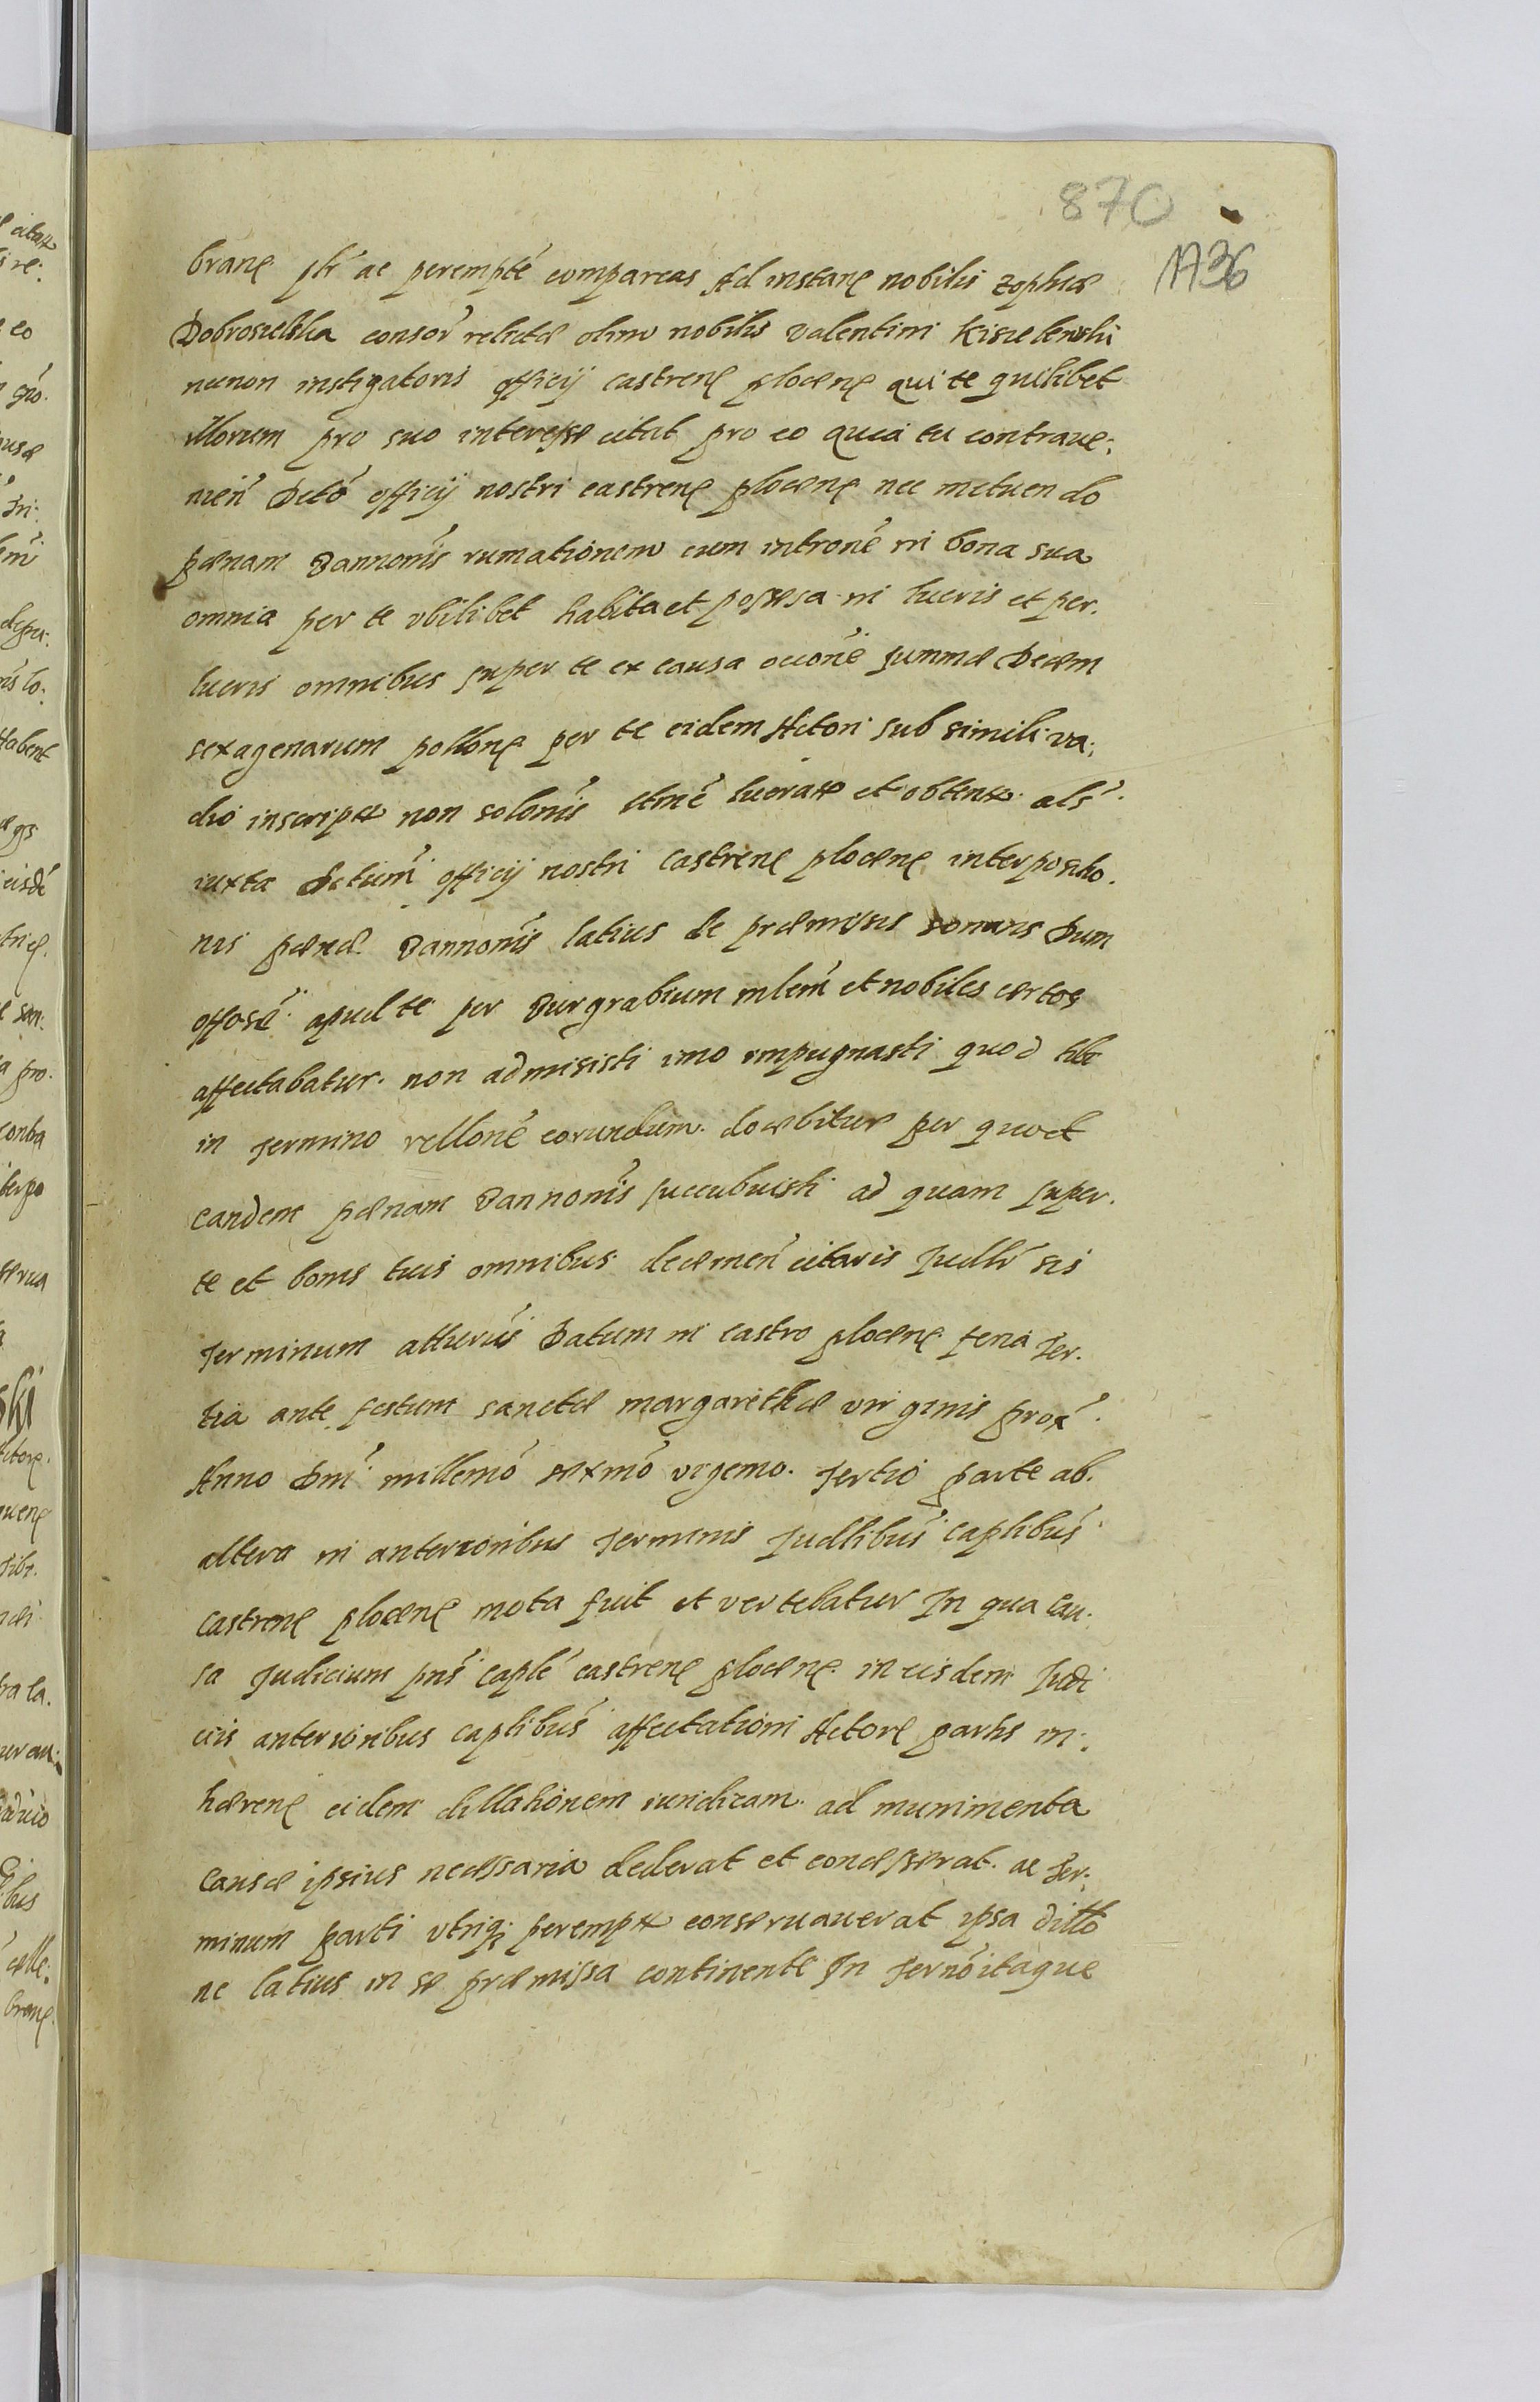 870
1736
brane pltr ac perempté compareas Ad instane nobilis Zophiæ
Dobrosielska consor relictæ olim nobilis Valentini Kisielewski
necnon instigatoris officij castrene plocene qui te quilibet
illorum pro suo interesse citat pro eo quia tu contraue:
nień Dctó officij nostri castrene plocene nec metuendo
pænam Bannonis rumationem cum introné in bona sua
omnia per te vbilibet habita et possessa in lucris et per.
lucris omnibus super te ex causa occone summæ Decem
sexagenarum pollone per te eidem Actori sub simili va:
dio inscript non solonis etmé lucrat et obtent als.
iuxta Dctum officij nostri castrene plocene interpositio.
nis pænæ Bannonis latius de præmissis sonans Dum
offosé apud te per Burgrabium mlem et nobiles certos
affectabatur. non admisisti imo impugnasti quod tibi
in Termino rellone eorundum docebitur per quod
eandem pænam Bannonis succubuisti ad quam super.
te et bonis tuis omnibus decernen citaris Judlr sis
Terminum attturus Datum in castro plocene feria Ter.
tia ante festum sanctæ margarethæ virginis prox.
Anno Dni millemo sexmo vigemo. Tertio parte ab.
altera in anterioribus Terminis Judlibus caplibus
castrene plocene mota fuit et vertebatur In qua cau.
sa Judicium pns caplé castrene plocene in eisdem Judi
ciis anterioribus caplibus affectationi Actore partis in:
hærene eidem dillationem iuridicam ad munimenta
causæ ipsius necessaria dederat et concesserat. ac Ter.
minum parti vtriq; perempt conseruauerat ipsa ditto
ne latius in se præmissa continente In Terno itaque